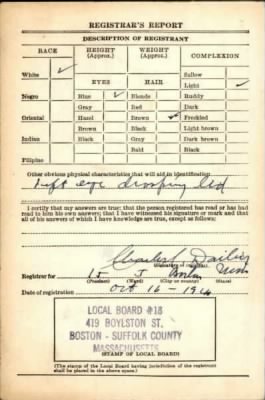 REGISTRAR'S REPORT
DESCRIPTION OF REGISTRANT
RACE HEIGHT (Approx.) WEIGHT (Approx.) COMPLEXION
White ✓ Sallow
EYES HAIR Light ✓
Negro Blue ✓ Blonde Ruddy
Gray Red Dark
Oriental Hazel Brown ✓ Freckled
Brown Black Light brown
Indian Black Gray Dark brown
Bald Black
Filipino
Other obvious physical characteristics that will aid in identification
Left eye drooping lid
I certify that my answers are true; that the person registered has read or has had
read to him his own answers; that I have witnessed his signature or mark and that
all of his answers of which I have knowledge are true, except as follows:
(Signature of registrar)
Registrar for 15 Boston Mass
(Precinct) (Ward) (City or county) (State)
Date of registration Oct 16 - 1940
LOCAL BOARD #18
419 BOYLSTON ST.
BOSTON - SUFFOLK COUNTY
MASSACHUSETTS
(STAMP OF LOCAL BOARD)
(The stamp of the Local Board having jurisdiction of the registrant
shall be placed in the above space.)